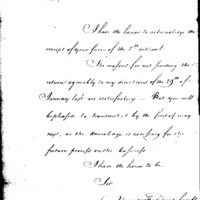 I have the honor to acknowledge the
receipt of your favor of the 7th instant
The reasons for not sending the
returns agreeably to my directions of the 29th of
January last are satisfactory — But you will
be pleased to transmit it by the first of may
next, as the knowledge is necessary for the
future process on the business
I have the honor to be
Sir